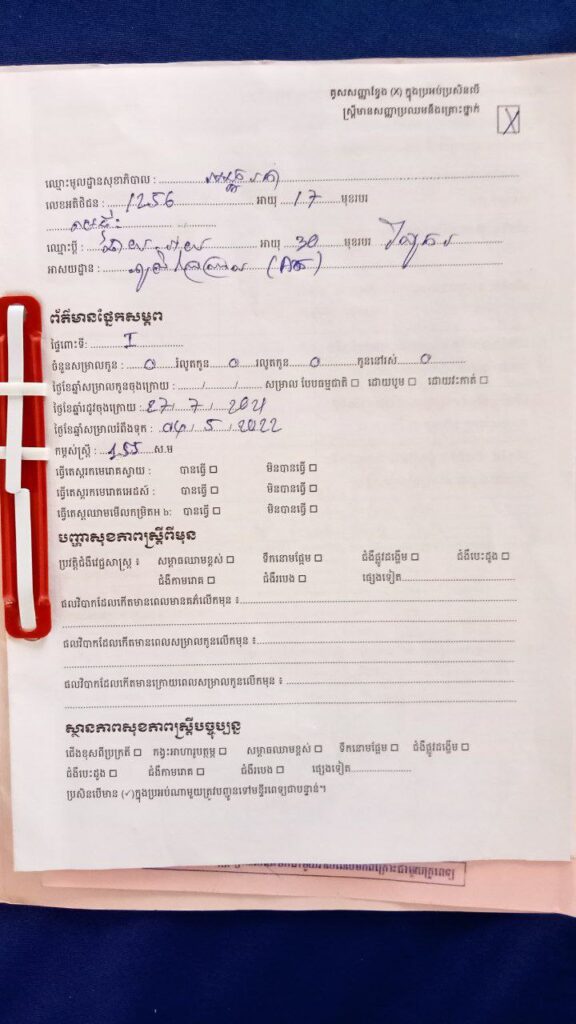 គូសសញ្ញាខ្វែង (X) ក្នុងប្រអប់ប្រសិនបើ
ស្ត្រីមានសញ្ញាប្រឈមនឹងគ្រោះថ្នាក់
X
ឈ្មោះមូលដ្ឋានសុខាភិបាល :
លេខអតិថិជន : 1256 អាយុ 17 មុខរបរ
ឈ្មោះប្តី : អាយុ 30 មុខរបរ
អាសយដ្ឋាន :
ព័ត៌មានផ្នែកសម្ភព
ផ្ទៃពោះទី: I
ចំនួនសម្រាលកូន : 0 រំលូតកូន 0 រលូតកូន 0 កូននៅរស់ 0
ថ្ងៃខែឆ្នាំសម្រាលកូនចុងក្រោយ : / / សម្រាល បែបធម្មជាតិ ☐ ដោយបូម ☐ ដោយវះកាត់ ☐
ថ្ងៃខែឆ្នាំរដូវចុងក្រោយ : 27/7/2021
ថ្ងៃខែឆ្នាំសម្រាលរំពឹងទុក : 04/5/2022
កម្ពស់ស្ត្រី : 155 ស.ម
ធ្វើតេស្តរកមេរោគស្វាយ : បានធ្វើ ☐ មិនបានធ្វើ ☐
ធ្វើតេស្តរកមេរោគអេដស៍ : បានធ្វើ ☐ មិនបានធ្វើ ☐
ធ្វើតេស្តឈាមមើលកម្រិតH b: បានធ្វើ ☐ មិនបានធ្វើ ☐
បញ្ហាសុខភាពស្ត្រីពីមុន
ប្រវត្តិជំងឺវេជ្ជសាស្ត្រ ៖ សម្ពាធឈាមខ្ពស់ ☐ ទឹកនោមផ្អែម ☐ ជំងឺផ្លូវដង្ហើម ☐ ជំងឺបេះដូង ☐
ជំងឺកាមរោគ ☐ ជំងឺរបេង ☐ ផ្សេងទៀត
ផលវិបាកដែលកើតមានពេលមានគភ៌លើកមុន ៖
ផលវិបាកដែលកើតមានពេលសម្រាលកូនលើកមុន ៖
ផលវិបាកដែលកើតមានក្រោយពេលសម្រាលកូនលើកមុន ៖
ស្ថានភាពសុខភាពស្ត្រីបច្ចុប្បន្ន
ជើងខុសពីប្រក្រតី ☐ កង្វះអាហារូបត្ថម្ភ ☐ សម្ពាធឈាមខ្ពស់ ☐ ទឹកនោមផ្អែម ☐ ជំងឺផ្លូវដង្ហើម ☐
ជំងឺបេះដូង ☐ ជំងឺកាមរោគ ☐ ជំងឺរបេង ☐ ផ្សេងទៀត
ប្រសិនបើមាន (✓)ក្នុងប្រអប់ណាមួយត្រូវបញ្ជូនទៅមន្ទីរពេទ្យជាបន្ទាន់។